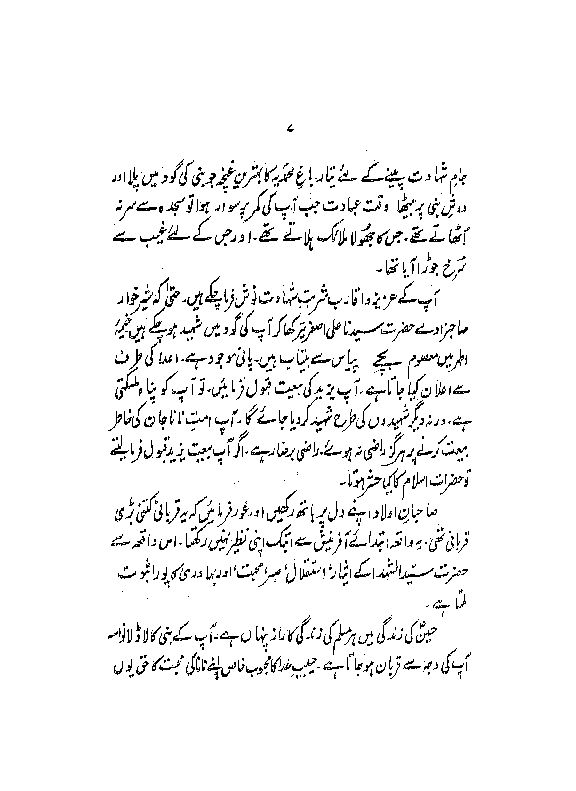 ۷
جام شہادت پینے کے لئے تیار باغ محمدیہ کا بہترین غنچہ جو نبی کی گود میں پلا اور
دوش نبی پر بیٹھا وقت عبادت جب آپ کی کمر پر سوار ہوا تو سجدہ سے سر نہ
اٹھاتے تھے۔ جس کا جھولا ملائک ہلاتے تھے۔ اور جس کے لئے غیب سے
سرخ جوڑا آیا تھا۔
آپ کے عزیز و اقارب شربت شہادت نوش فرما چکے ہیں۔ حتی کہ شیر خوار
صاحبزادے حضرت سیدنا علی اصغر تیر کھا کر آپ کی گود میں شہید ہو چکے ہیں خیمۂ
اطہر میں معصوم بچے پیاس سے بیتاب ہیں۔ پانی موجود ہے۔ اعدا کی طرف
سے اعلان کیا جاتا ہے۔ آپ یزید کی بیعت قبول فرمائیں۔ تو آپ کو پناہ مل سکتی
ہے۔ ورنہ دیگر شہیدوں کی طرح شہید کر دیا جائے گا۔ آپ امت نانا جان کی خاطر
بیعت کرنے پر ہرگز راضی نہ ہوئے۔ راضی برضا رہے۔ اگر آپ بیعت یزید قبول فرما لیتے
تو حضرات اسلام کا کیا حشر ہوتا۔
صاحبان اولاد اپنے دل پر ہاتھ رکھیں اور غور فرمائیں کہ یہ قربانی کتنی بڑی
قربانی تھی۔ یہ واقعہ ابتدائے آفرینش سے ابتک اپنی نظیر نہیں رکھتا۔ اس واقعہ سے
حضرت سید الشہدا کے ایثار، استقلال، صبر، محبت، اور بہادری کا پورا ثبوت
ملتا ہے۔
حسینؓ کی زندگی میں ہر مسلم کی زندگی کا راز پنہاں ہے۔ آپ کے نبی کا لاڈلا نواسہ
آپ کی وجہ سے قربان ہو جاتا ہے۔ حبیب خدا کا محبوب خاص اپنے نانا کی محبت کا حق یوں